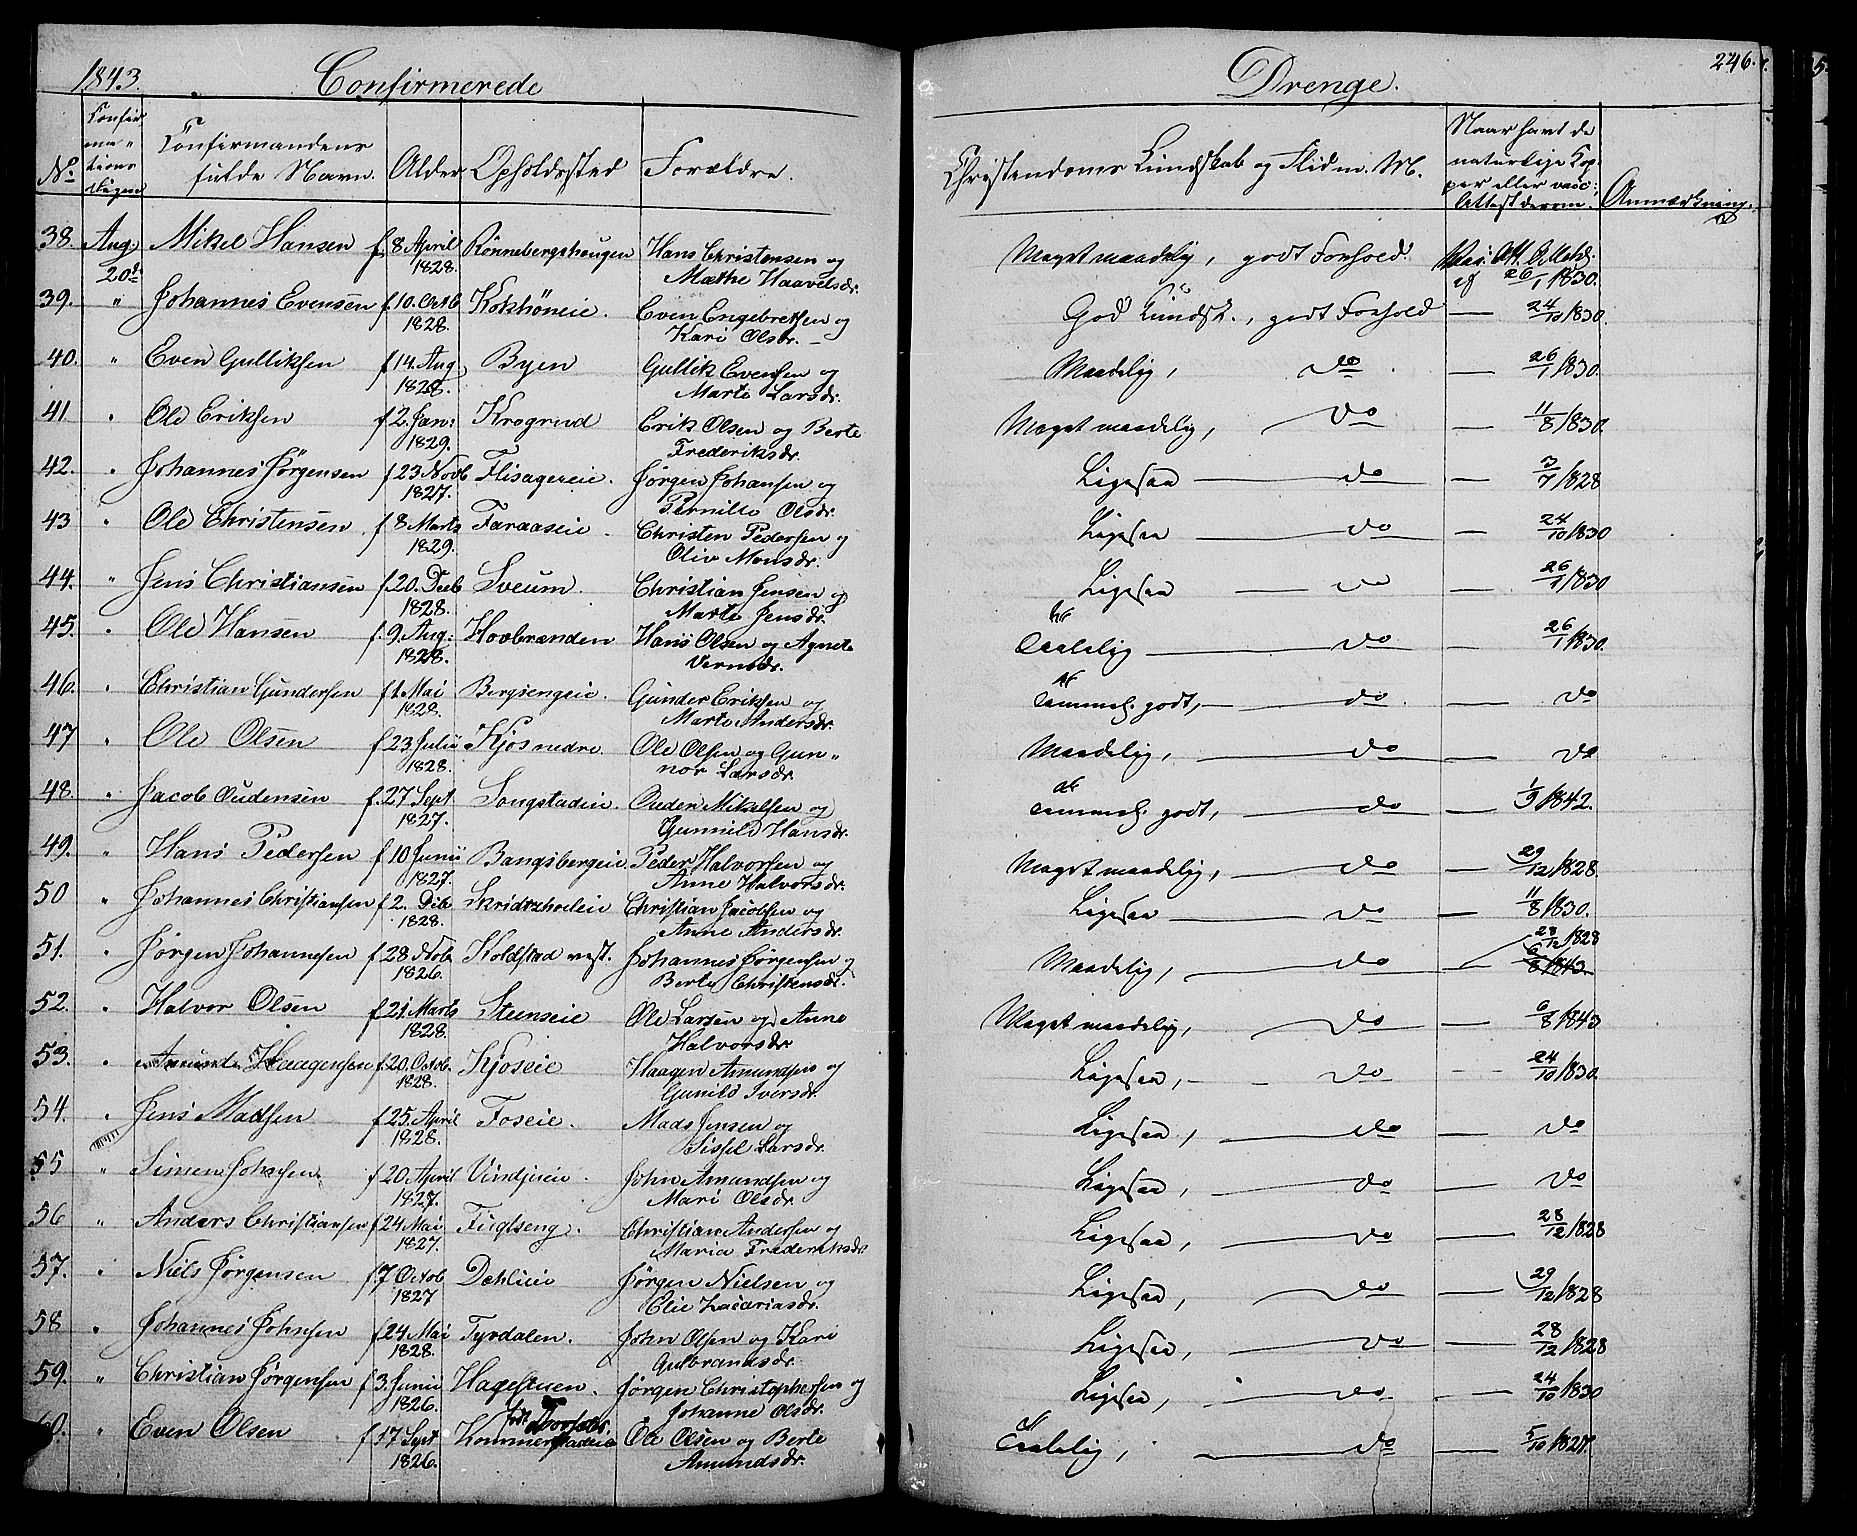 1843. Confirmerede Drenge. 246.
No Confirmations Dagen Confirmandens fulde Navn. Alder Opholdssted Forældre. Christendoms Kundskab og Flid m. M. Naar havt de naturlige Kopper eller vacc: Attest derom. Anmærkning.
38. Aug: Mikel Hansen f. 8 April Rönnebergshaugen Hans Christensen og Meget maadelig, godt Forhold.
20de 1828. Mathe Haavelsdr. 26/1 1830.
39. " Johannes Evensen f. 10. Octb Kokhöneie. Even Engebretsen og God Kundsk., godt Forhold — 24/10 1830.
1828. Kari Olsdr. —
40. " Even Gulliksen f 14. Aug Byen Gullik Evensen og Maadelig, do — 26/1 1830.
1828. Marte Larsdr.
41 " Ole Eriksen f 2. Jan: Krogrud Erik Olsen og Berte Meget maadelig, do — 11/8 1830.
1829. Frederiksdr.
42. " Johannes Jörgensen f 23 Novb Flisagereie. Jörgen Johansen og Ligesaa — do — 3/7 1828
1827. Pernille Olsdr.
43 " Ole Christensen f 8 Marts Faraaseie. Christen Pedersen og Ligesaa — do — 24/10 1830
1829. Olive Monsdr.
44. " Jens Christiansen f. 20. Deeb Sveum. Christian Jensen og Ligesaa — do — 26/1 1830
1828. Marte Jensdr.
45. " Ole Hansen f. 9. Aug: Hovbrænden Hans Olsen og Agnete Taalelig — do — 26/1 1830.
1828.
46. " Christian Gundersen f 1. Mai Bergsengeie. Gunder Eriksen og Temmel. godt, — do — do
1828. Marte Andersdr.
47 " Ole Olsen f 23 Julii Kjos nedre. Ole Olsen og Gun- Maadelig, — do — do
1828. nor Larsdr.
48. " Jacob Oudensen f. 27 Sept Songstadeie. Ouden Mikelsen og Temmel. godt, — do — 1/9 1842.
1827. Gunnild Hansdr.
49. " Hans Pedersen f 10 Junii Bangsbergeie Peder Halvorsen og Meget maadelig, — do — 29/12 1828.
1827. Anne Halvorsdr.
50 " Johannes Christiansen f 2. Deb Christian Jacobsen og Ligesaa — do — 11/8 1830.
1828. Anne Andersdr.
51. " Jörgen Johannesen f 28 Nob Koldstad vest. Johannes Jörgensen og Maadelig, — do — 28/12 1828
1826. Berte Christensdr. 6/8 1843.
52. " Halvor Olsen f. 21. Marts Steenseie Ole Larsen og Anne Meget maadelig, — do — 6/8 1843
1828. Halvorsdr.
53. " Amund Haagensen f 20. Octob. Kjoseie Haagen Amundsen og Ligesaa, — do — 24/10 1830.
1828. Gunild Iversdr.
54. " Jens Madsen f 25. April Foseie. Mads Jensen og Ligesaa, — do — do
1828. Sissel Larsdr.
55 " Simen Johnsen f 20 April Vindjueie. John Amundsen og Ligesaa, — do — do
1827. Mari Olsdr.
56 " Anders Christiansen f 24. Mai Fuglseng. Christian Andersen og Ligesaa, — do — 28/12 1828
1827. Maria Frederiksdr.
57. " Niels Jörgensen f. 7 Octob Dehlieie Jörgen Nielsen og Ligesaa, — do — 29/12 1828
1827 Elie Zacariasdr.
58 " Johannes Johnsen f 24 Mai Tyrdalen. John Olsen og Kari Ligesaa, — do — 28/12 1828
1828. Gulbrandsdr.
59. " Christian Jörgensen f 3. Junii Hagestuen. Jörgen Christophersen og Ligesaa, — do — 24/10 1830
1826. Johanne Olsdr.
60. " Even Olsen f. 17 Sept Kommerstadeie Ole Olsen og Berte Taalelig, — do — 5/10 1827.
1826. Amundsdr.